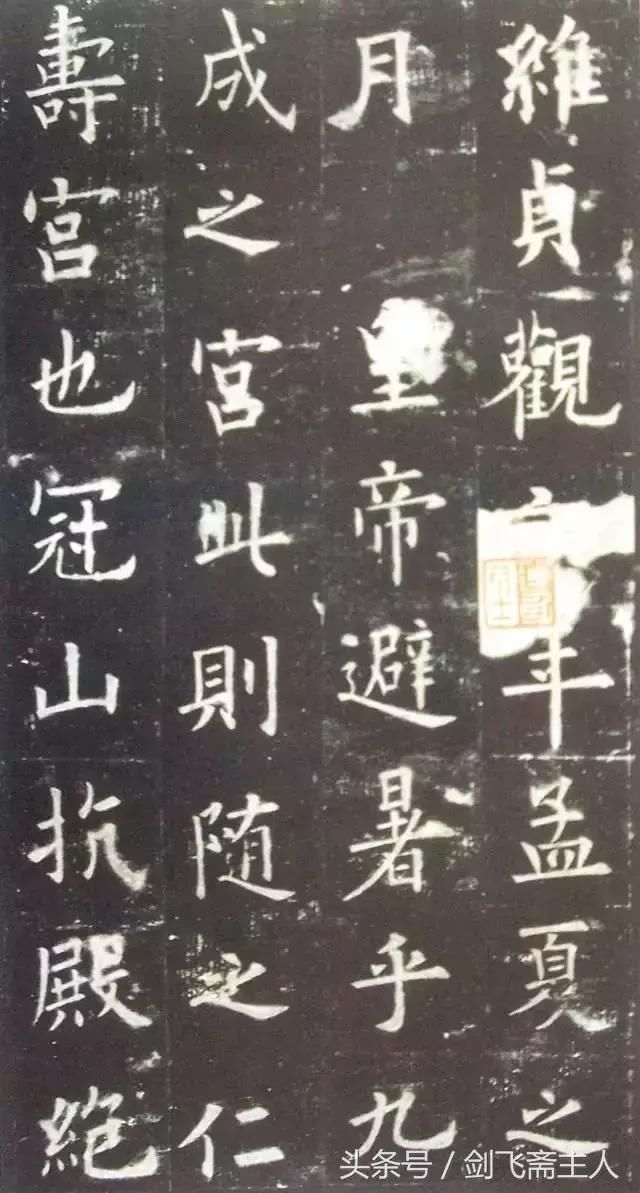 維貞觀年孟夏之
月皇帝避暑乎九
成之宮此則随之仁
壽宮也冠山抗殿絕
头条号 / 剑飞斋主人